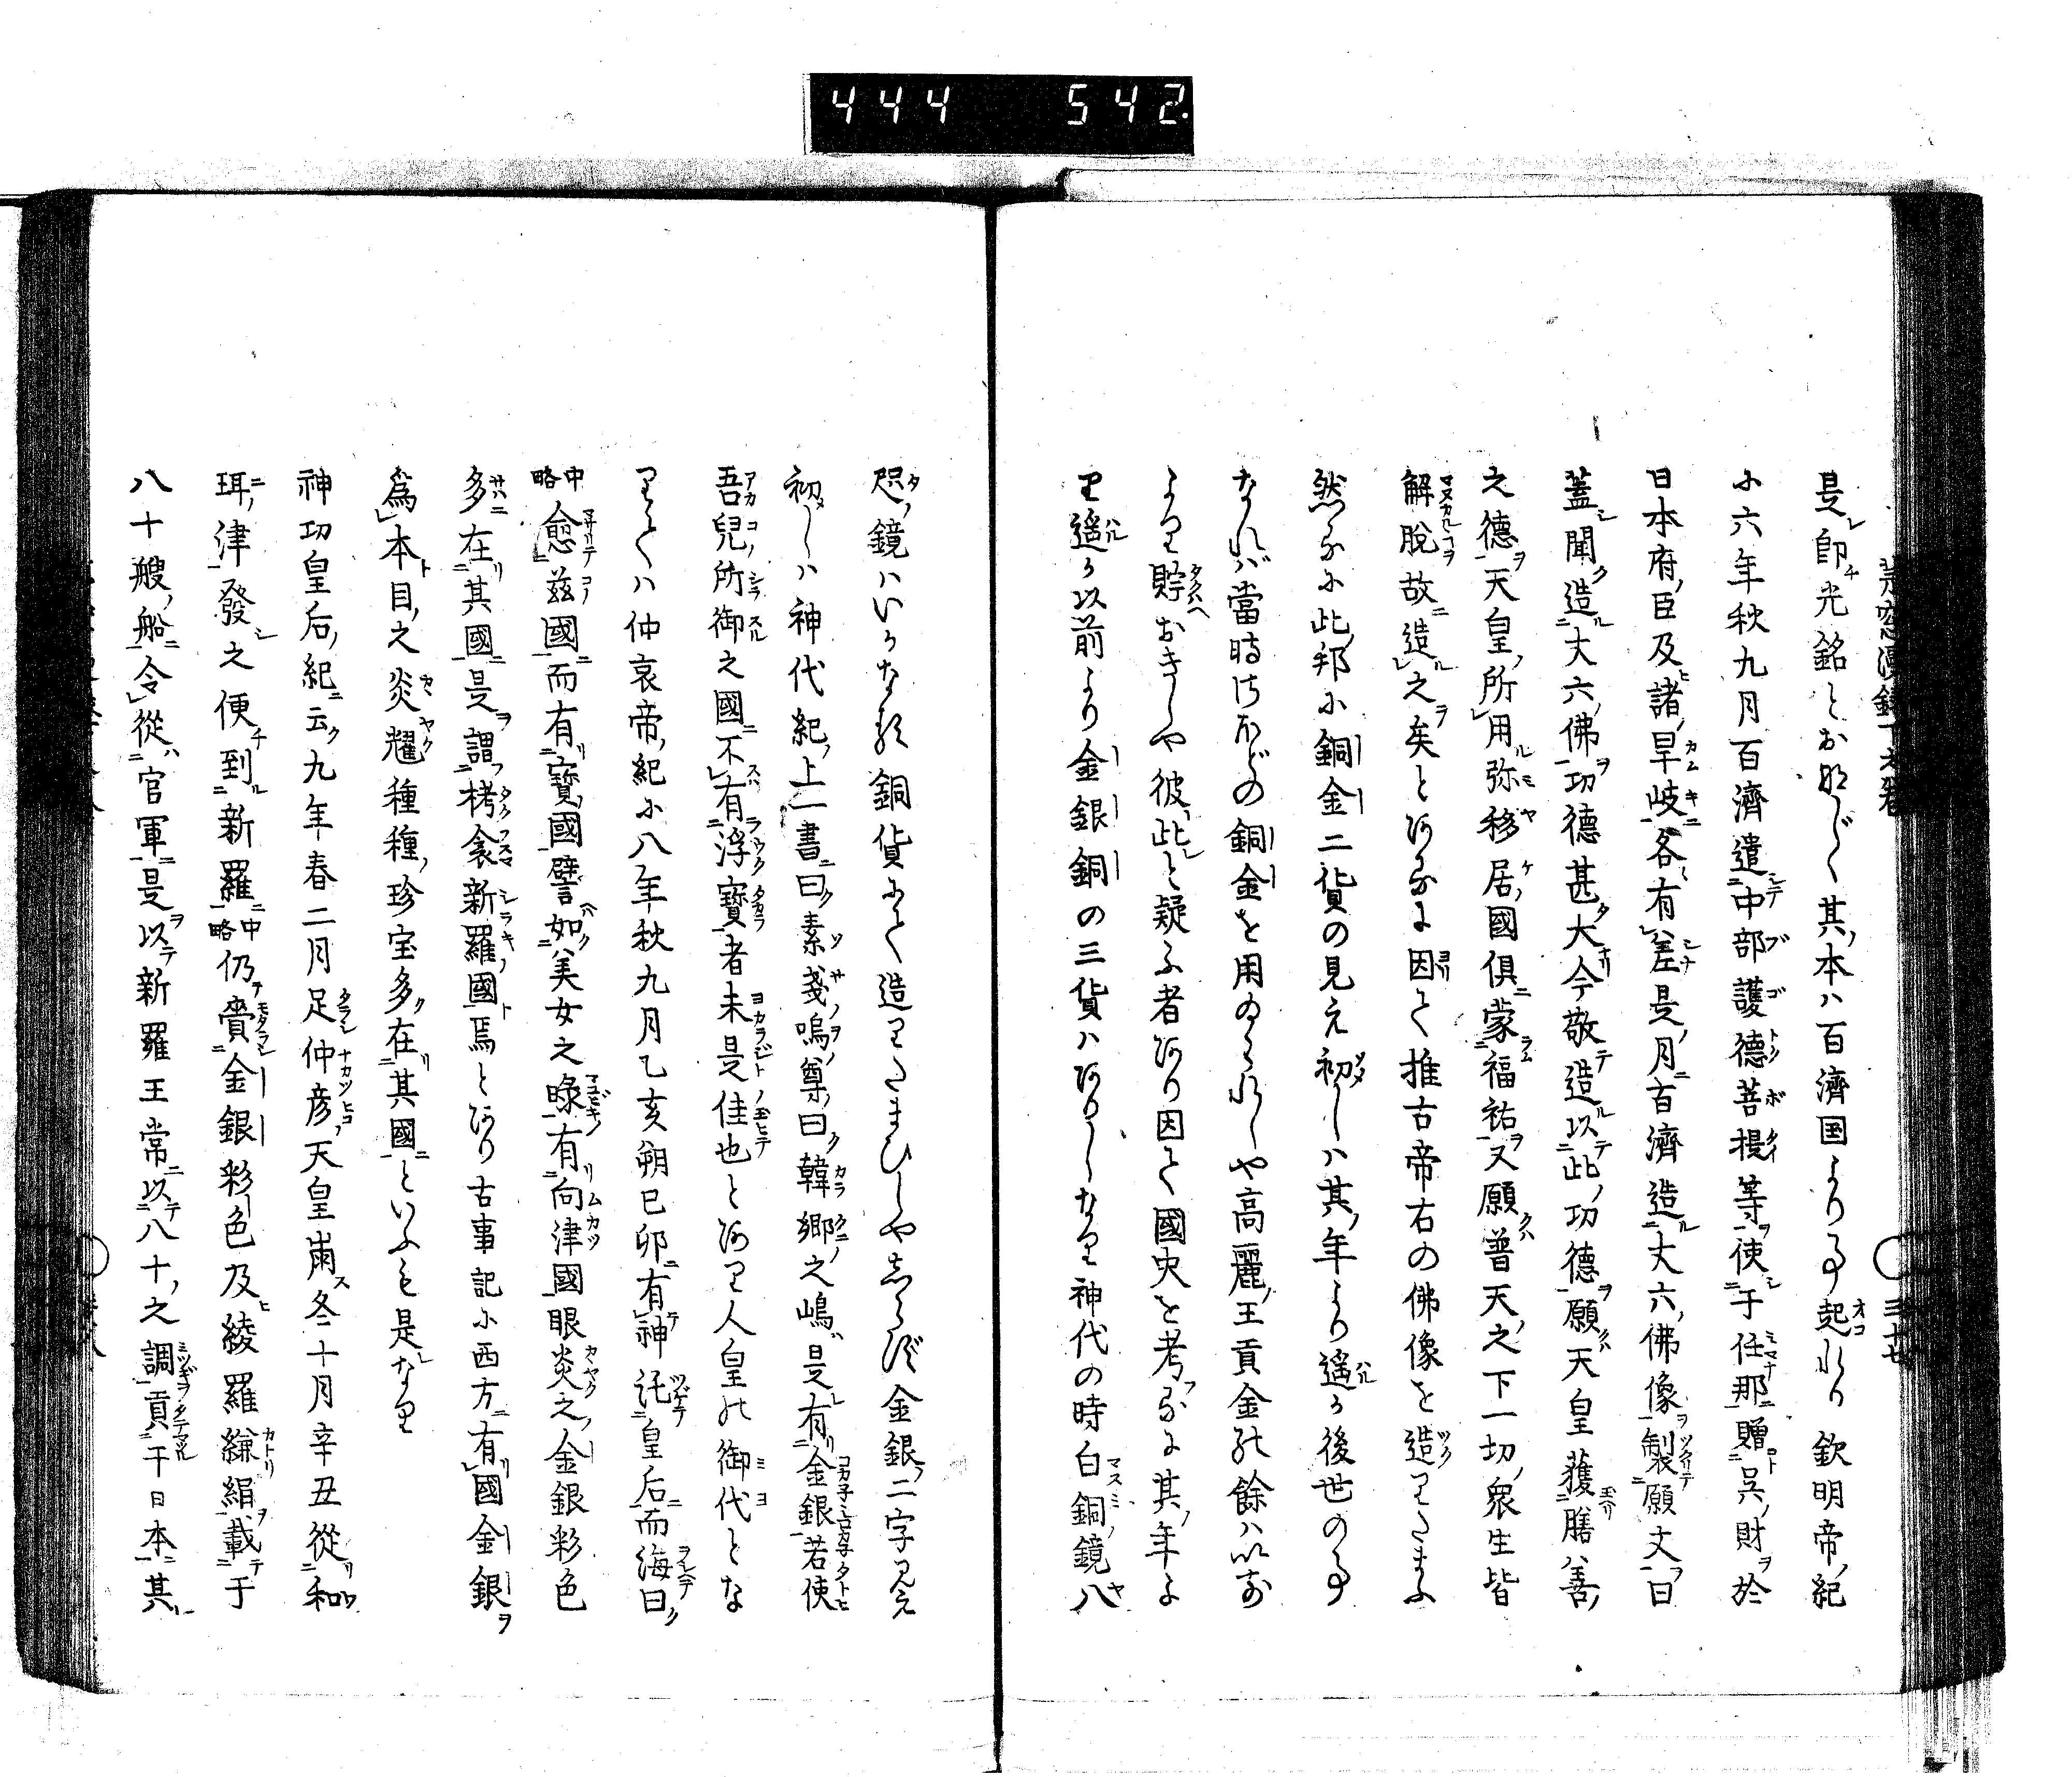 444 542.
是即光銘とおなじく其本ハ百濟国より事起れり欽明帝紀
に六年秋九月百濟遣中部護德菩提等使于任那贈呉財於
日本府臣及諸旱岐各有差是月百濟造丈六佛像製願文曰
蓋聞造丈六佛功德甚大今敬造以此功德願天皇獲勝善
之德天皇所用弥移居國俱蒙福祐又願普天之下一切衆生皆
解脫故造之矣とあるに因て推古帝右の佛像を造りたまふ
然るに此邦に銅金二貨の見え初しハ其年より遥か後世の事
なれバ當時さほどの銅金を用ゐられしや高麗王貢金の餘ハ以前
より貯おきしや彼此と疑ふ者あり因て國史を考るに其年よ
り遥か以前より金銀銅の三貨ハありしなり神代の時白銅鏡八
咫鏡ハいかなる銅貨にて造りたまひしやしらず金銀二字見え
初しハ神代紀上一書曰素戔嗚尊曰韓郷之嶋是有金銀若使
吾兒所御之國不有浮寶者未是佳也とあり人皇の御代とな
りてハ仲哀帝紀に八年秋九月乙亥朔己卯有神託皇后而誨曰
中略愈茲國而有寶國譬如美女之睩有向津國眼炎之金銀彩色
多在其國是謂栲衾新羅國焉とあり古事記に西方有國金銀
爲本目之炎耀種種珍宝多在其國といふも是なり
神功皇后紀云九年春二月足仲彦天皇崩冬十月辛丑從和
珥津發之便到新羅中略仍賷金銀彩色及綾羅縑絹載于
八十艘船令從官軍是以新羅王常以八十之調貢于日本其